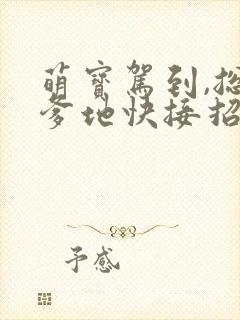 萌寳駕到,总
爹地快接招
予感